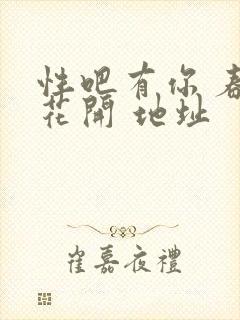 性吧有你 春
花開 地址
崔嘉夜禮